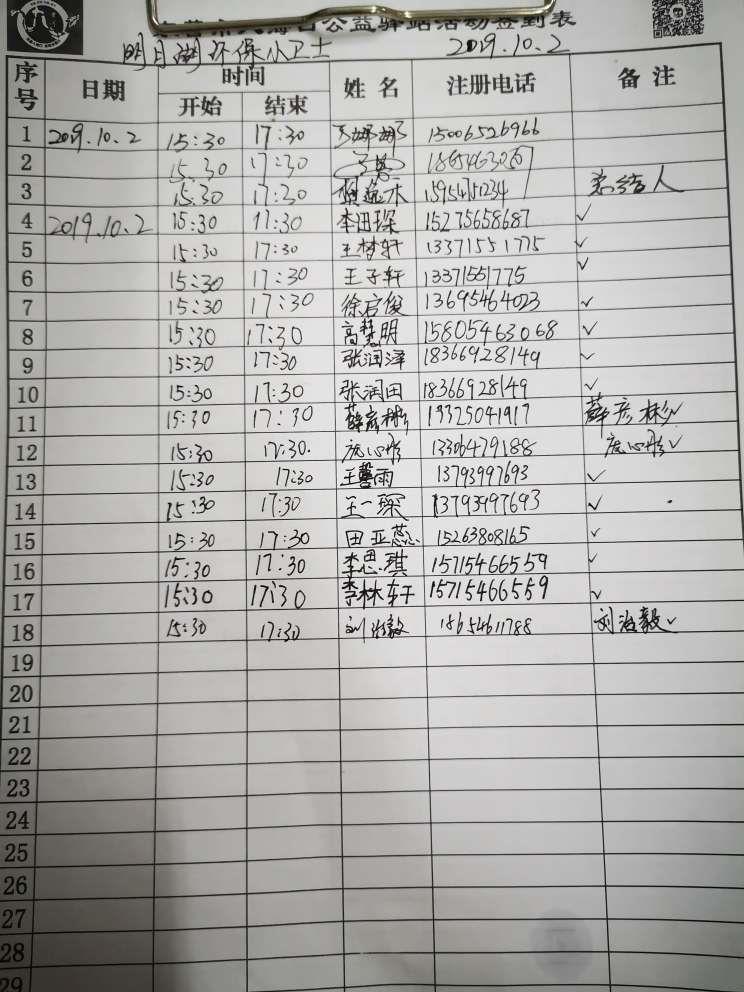 公益驿站活动签到表
明月湖环保小卫士 2019.10.2
序号 日期 时间 姓名 注册电话 备注
开始 结束
1 2019.10.2 15:30 17:30 15006526966
2 15:30 17:30
3 15:30 17:30
4 2019.10.2 15:30 17:30 李田琛 15275658687 ✓
5 15:30 17:30 王梦轩 13371551775 ✓
6 15:30 17:30 王子轩 13371551775 ✓
7 15:30 17:30 徐启俊 13695464023 ✓
8 15:30 17:30 高慧明 15805463068 ✓
9 15:30 17:30 张润泽 18366928149 ✓
10 15:30 17:30 张润田 18366928149 ✓
11 15:30 17:30 薛彦彬 13325041917 薛彦彬✓
12 15:30 17:30. 庞心彤 13306479188 庞心彤✓
13 15:30 17:30 王馨雨 13793997693 ✓
14 15:30 17:30 王一琛 13793997693 ✓
15 15:30 17:30 田亚蕊 15263808165 ✓
16 15:30 17:30 李思琪 15715466559 ✓
17 15:30 17:30 李林轩 15715466559 ✓
18 15:30 17:30 刘治毅 18654611788 刘治毅✓
19
20
21
22
23
24
25
26
27
28
29